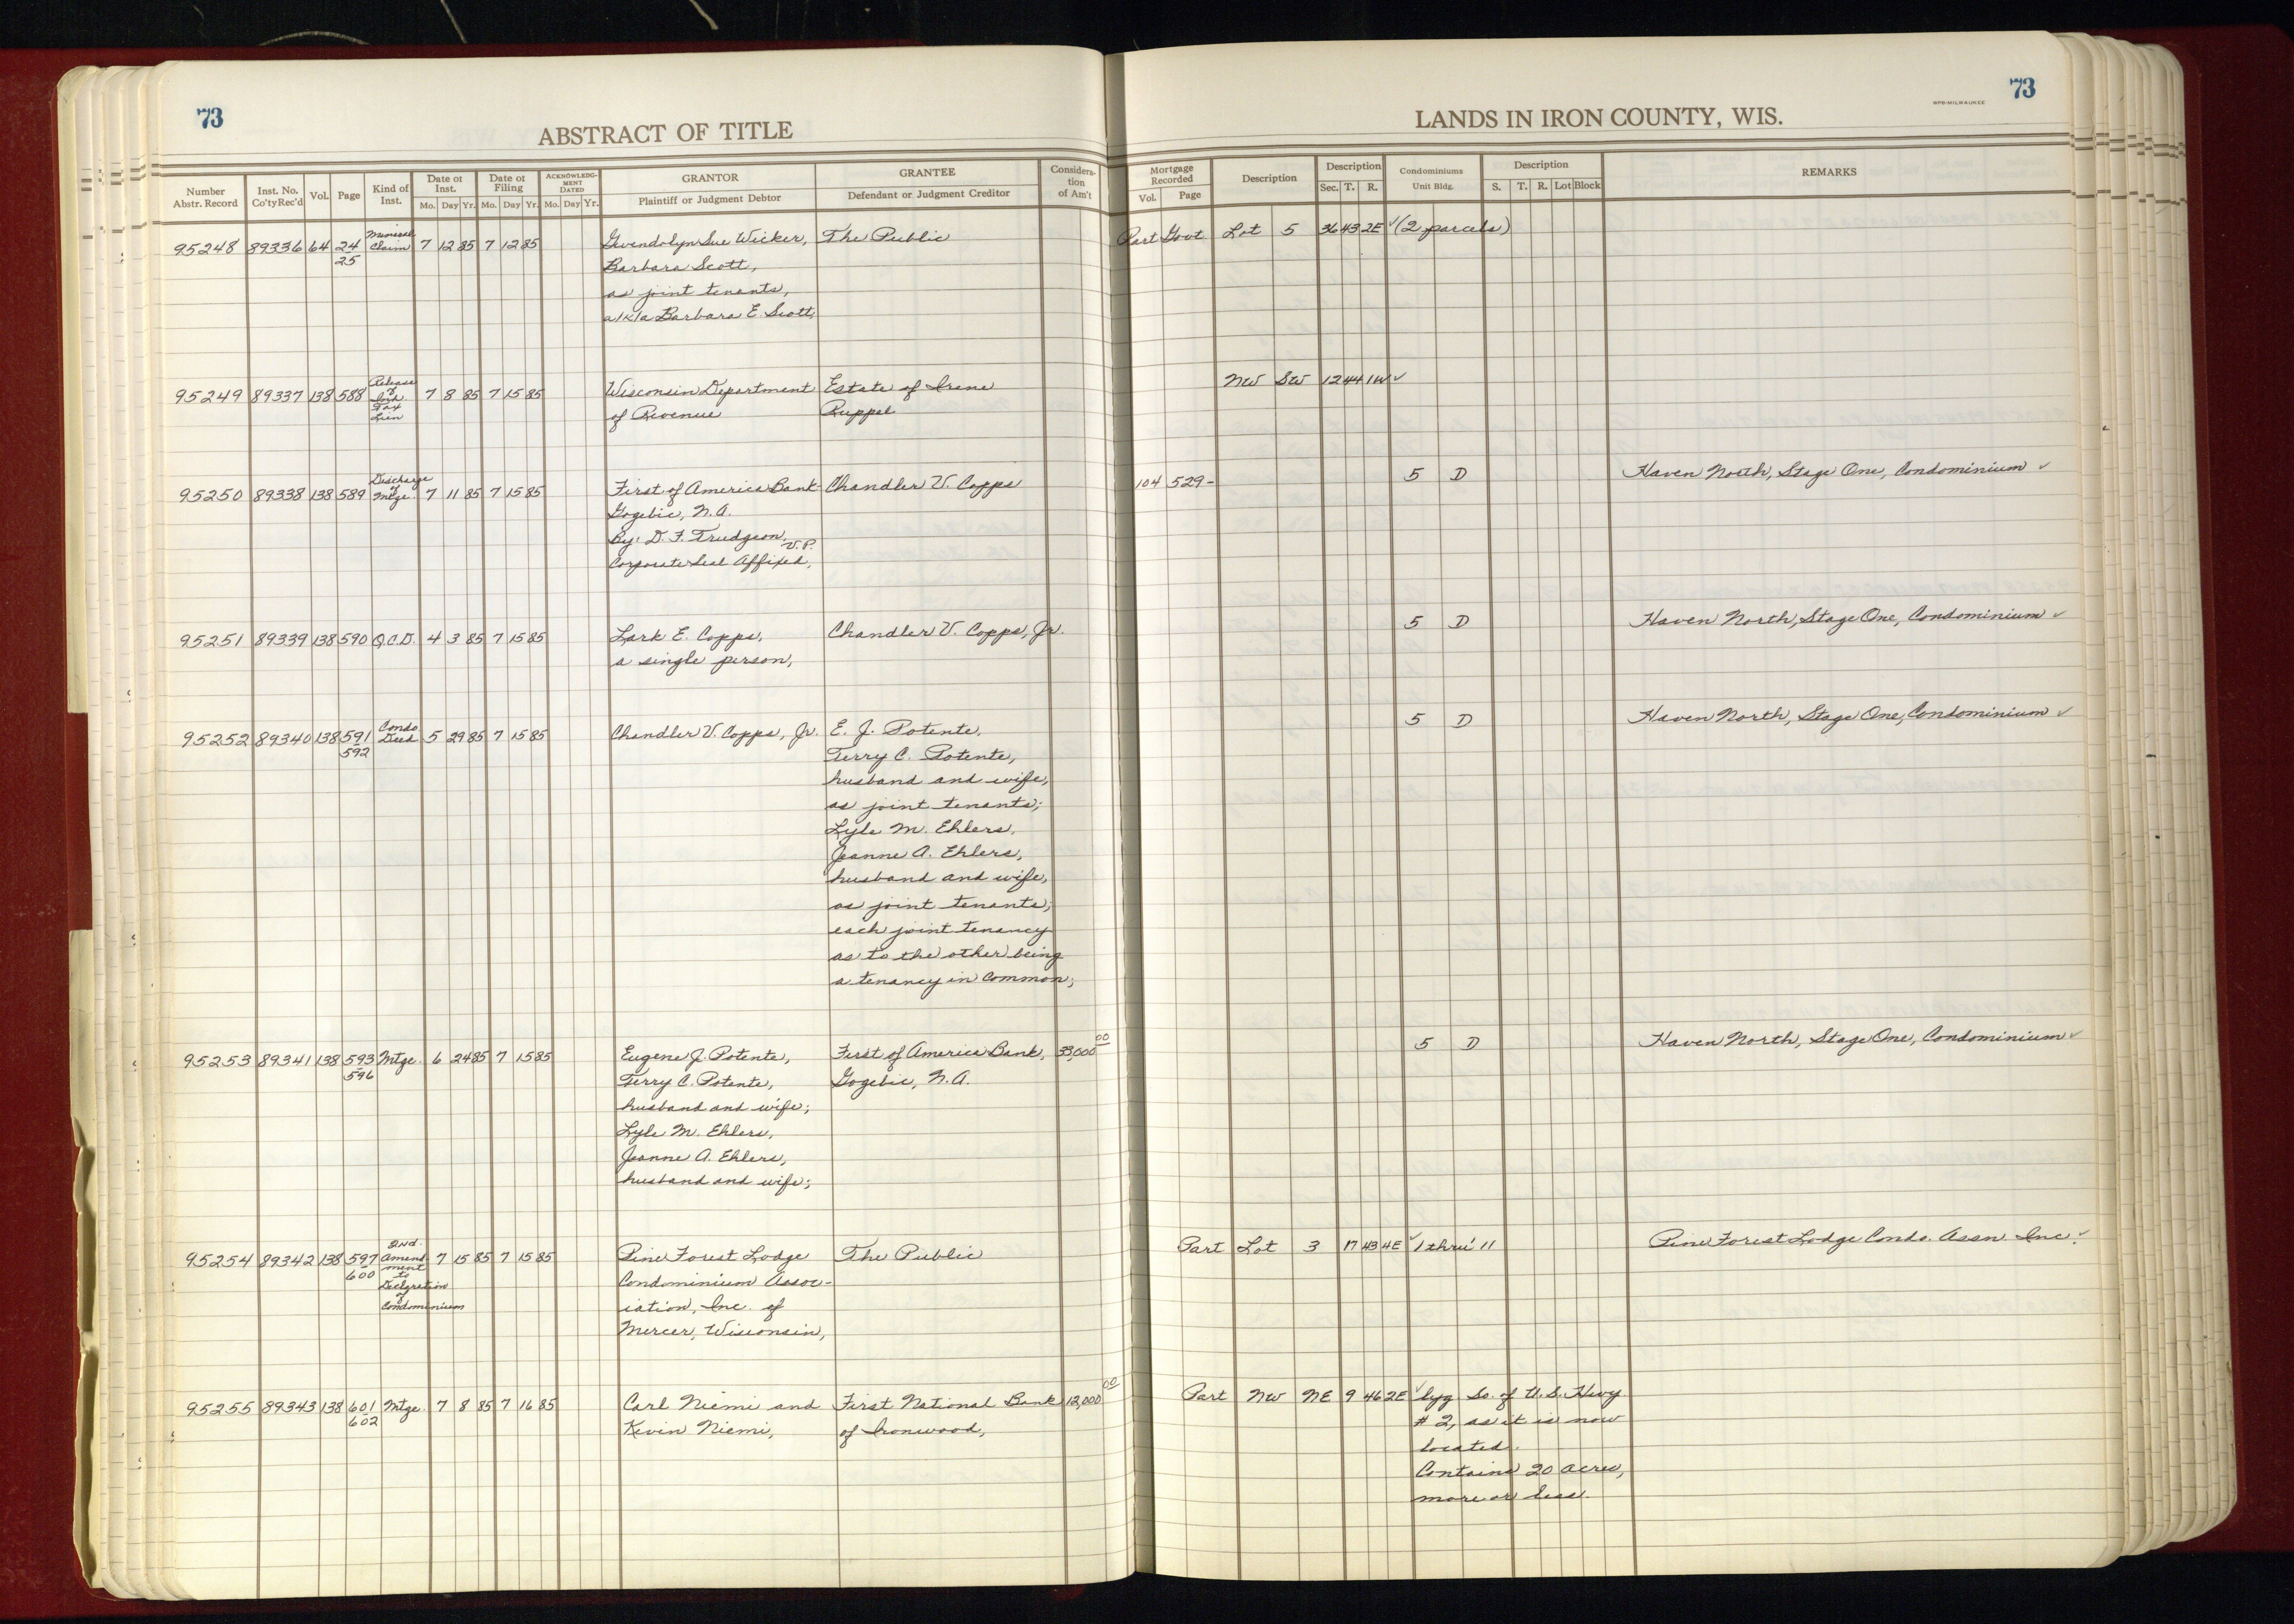 73
ABSTRACT OF TITLE
Number Abstr. Record
Inst. No. Co'ty Rec'd
Vol.
Page
Kind of Inst.
Date of Inst.
Mo. Day Yr.
Date of Filing
Mo. Day Yr.
ACKNOWLEDG-MENT DATED
Mo. Day Yr.
GRANTOR
Plaintiff or Judgment Debtor
GRANTEE
Defendant or Judgment Creditor
Considera-tion of Am't
95248 89336 64 24 Mineral Claim 7 12 85 7 12 85 Gwendolyn Sue Wicker, The Public
25 Barbara Scott,
as joint tenants,
a/k/a Barbara E. Scott,
95249 89337 138 588 Release of Inh. Tax Lien 7 8 85 7 15 85 Wisconsin Department Estate of Irene
of Revenue Ruppel
95250 89338 138 589 Discharge of Mtge. 7 11 85 7 15 85 First of America Bank- Chandler V. Copps
Gogebic, N.A.
By: D. F. Trudgeon, V.P.
Corporate Seal Affixed,
95251 89339 138 590 Q.C.D. 4 3 85 7 15 85 Lark E. Copps, Chandler V. Copps, Jr.
a single person,
95252 89340 138 591 Condo Deed 5 29 85 7 15 85 Chandler V. Copps, Jr. E. J. Potente,
592 Terry C. Potente,
husband and wife,
as joint tenants;
Lyle M. Ehlers,
Jeanne A. Ehlers,
husband and wife,
as joint tenants;
each joint tenancy
as to the other being
a tenancy in common;
95253 89341 138 593 Mtge. 6 24 85 7 15 85 Eugene J. Potente, First of America Bank, 33,000 00
596 Terry C. Potente, Gogebic, N.A.
husband and wife;
Lyle M. Ehlers,
Jeanne A. Ehlers,
husband and wife;
95254 89342 138 597 2nd. Amend- 7 15 85 7 15 85 Pine Forest Lodge The Public
600 ment to Declaration of Condominium Condominium Assoc-
iation, Inc. of
Mercer, Wisconsin,
95255 89343 138 601 Mtge. 7 8 85 7 16 85 Carl Niemi and First National Bank 12,000 00
602 Kevin Niemi, of Ironwood,
73
WPB-MILWAUKEE
LANDS IN IRON COUNTY, WIS.
Mortgage Recorded
Vol. Page
Description
Description
Sec. T. R.
Condominiums
Unit Bldg.
Description
S. T. R. Lot Block
REMARKS
Part Govt. Lot 5 36 43 2E ✓ (2 parcels)
NW SW 12 44 1W ✓
104 529- 5 D Haven North, Stage One, Condominium ✓
5 D Haven North, Stage One, Condominium ✓
5 D Haven North, Stage One, Condominium ✓
5 D Haven North, Stage One, Condominium ✓
Part Lot 3 17 43 4E ✓ 1 thru' 11 Pine Forest Lodge Condo. Assn. Inc. ✓
Part NW NE 9 46 2E ✓ lyg. So. of U.S. Hwy.
# 2, as it is now
located.
Contains 20 acres,
more or less.